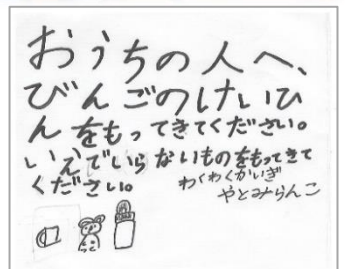 おうちの人へ、
びんごのけいひ
んをもってきてください。
いえでいらないものをもってきて
ください。
わくわくかいぎ
やとみらんこ